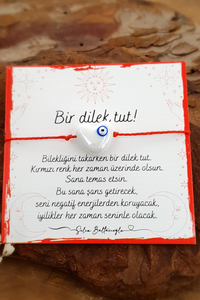 Bir dilek tut!
Bilekliğini takarken bir dilek tut.
Kırmızı renk her zaman üzerinde olsun.
Sana temas etsin.
Bu sana şans getirecek,
seni negatif enerjilerden koruyacak,
iyilikler her zaman seninle olacak.